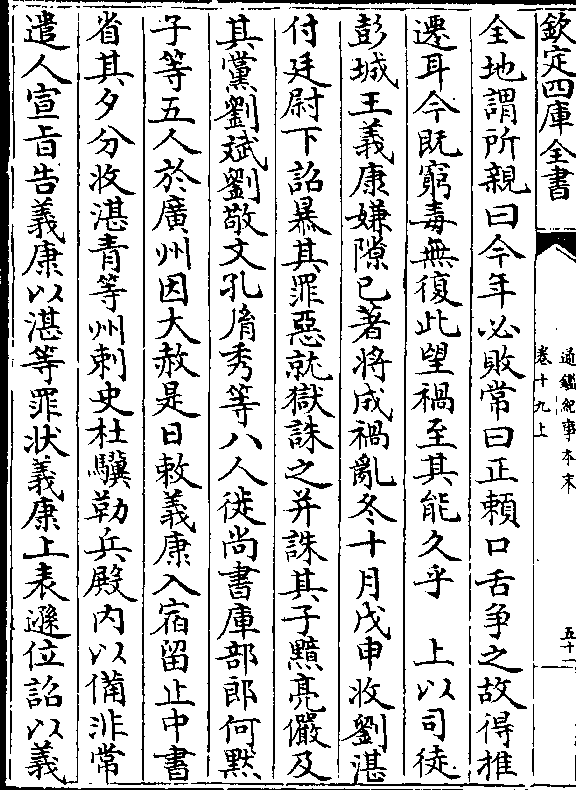 欽定四庫全書
通鑑紀事本末
卷十九上
五十一
全地謂所親曰今年必敗常曰正賴口舌爭之故得推
遷耳今既窮毒無復此望禍至其能久乎　上以司徒
彭城王義康嫌隙已著將成禍亂冬十月戊申收劉湛
付廷尉下詔暴其罪惡就獄誅之并誅其子黯亮儼及
其黨劉斌劉敬文孔𦙍秀等八人徙尚書庫部郎何黙
子等五人於廣州因大赦是日敕義康入宿留止中書
省其夕分收湛青等州刺史杜驥勒兵殿内以備非常
遣人宣旨告義康以湛等罪狀義康上表遜位詔以義